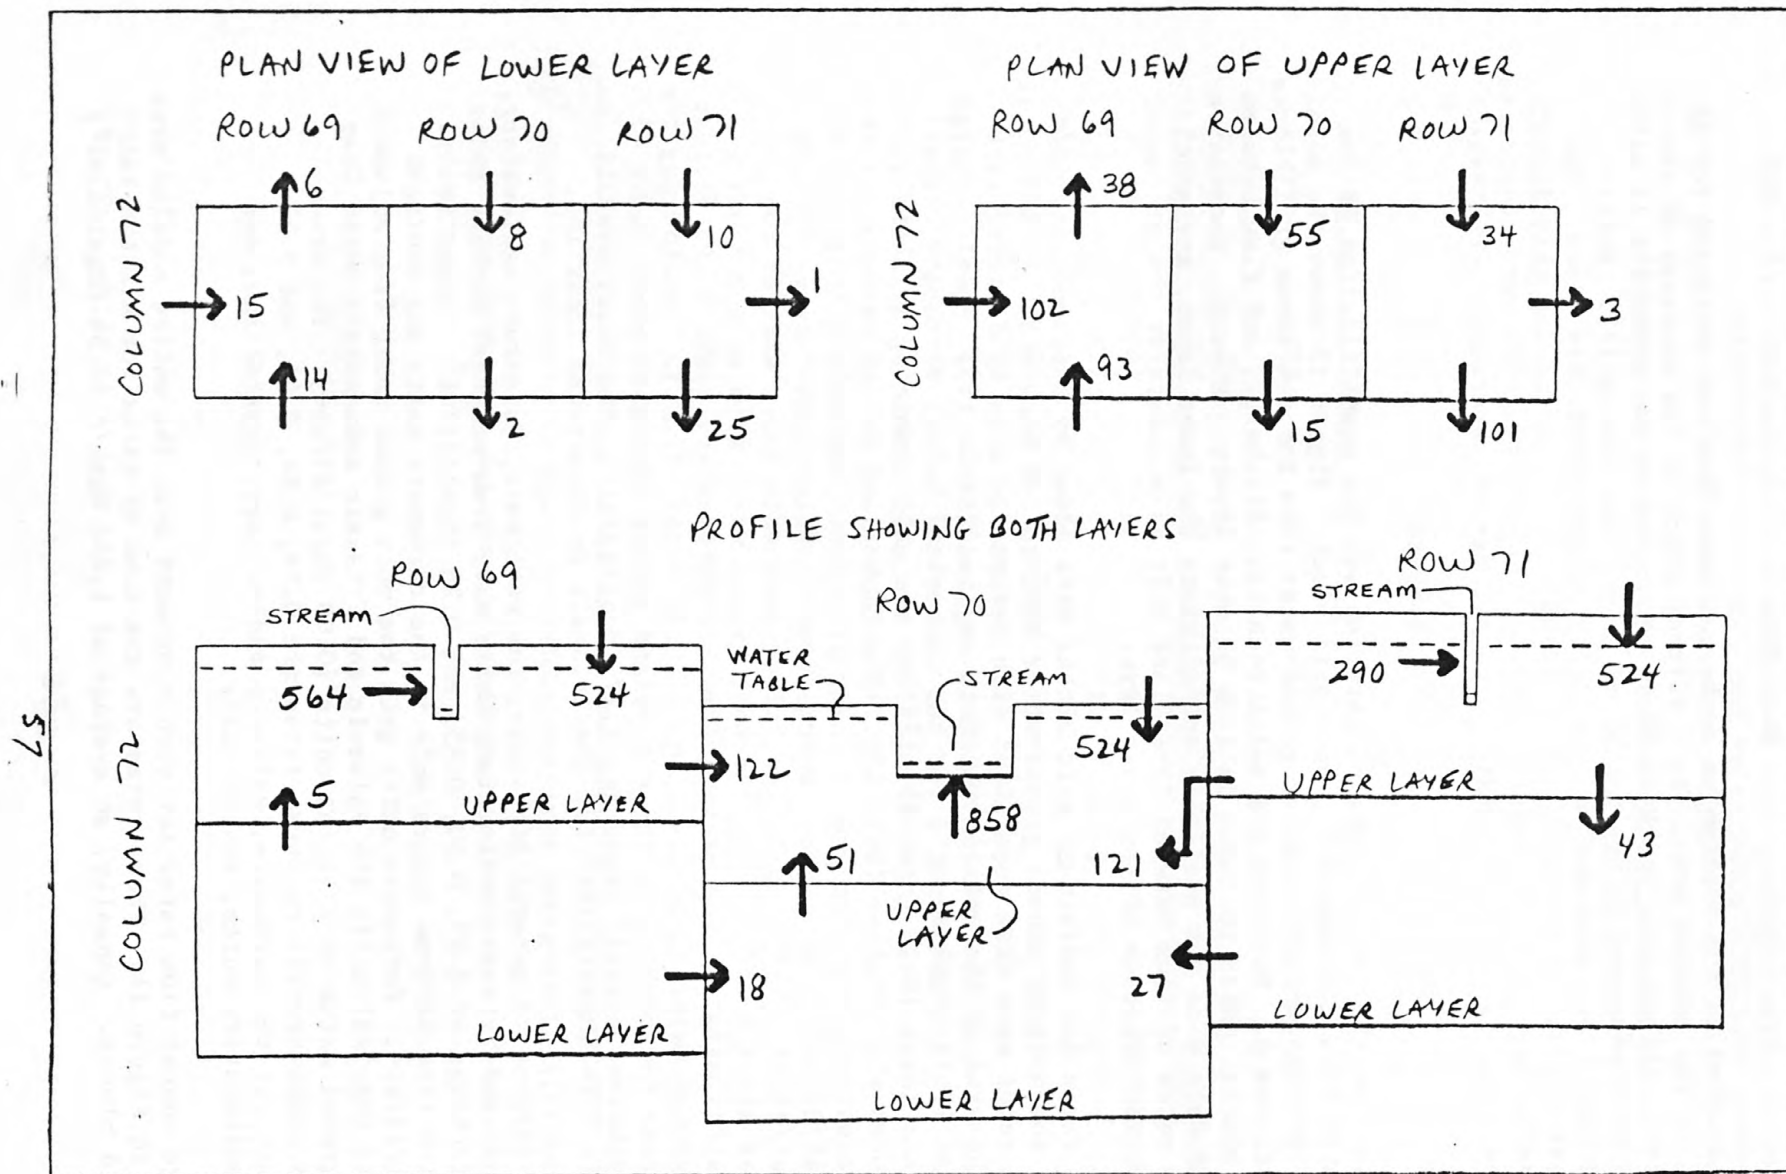 PLAN VIEW OF LOWER LAYER
ROW 69 ROW 70 ROW 71
COLUMN 72
6
8
10
15
1
14
2
25
PLAN VIEW OF UPPER LAYER
ROW 69 ROW 70 ROW 71
COLUMN 72
38
55
34
102
3
93
15
101
PROFILE SHOWING BOTH LAYERS
ROW 69
STREAM
564
524
COLUMN 72
5
UPPER LAYER
LOWER LAYER
ROW 70
WATER
TABLE
STREAM
524
122
858
121
51
UPPER
LAYER
18
27
LOWER LAYER
ROW 71
STREAM
290
524
UPPER LAYER
43
LOWER LAYER
57